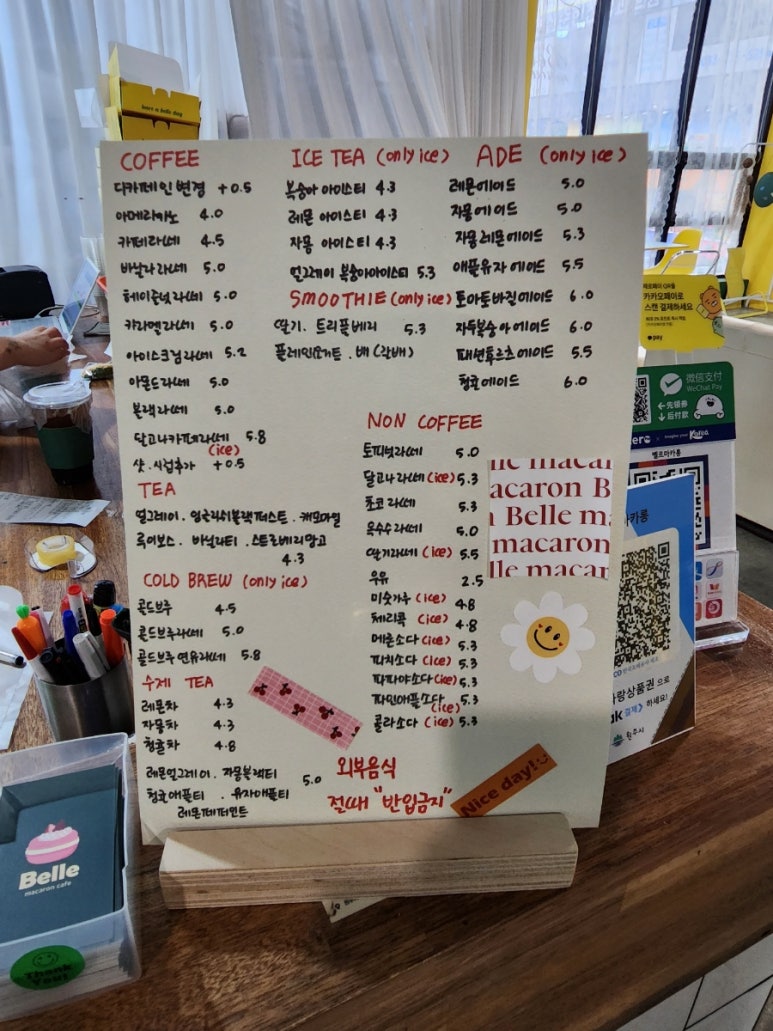 COFFEE
디카페인 변경 +0.5
아메리카노 4.0
카페라떼 4.5
바닐라라떼 5.0
헤이즐넛라떼 5.0
카라멜라떼 5.0
아이스크림라떼 5.2
아몬드라떼 5.0
블랙라떼 5.0
달고나카페라떼 5.8
(ice)
샷.시럽추가 +0.5
TEA
얼그레이.잉글리쉬블랙퍼스트.캐모마일
루이보스.바닐라티.스트로베리망고
4.3
COLD BREW (only ice)
콜드브루 4.5
콜드브루라떼 5.0
콜드브루연유라떼 5.8
수제 TEA
레몬차 4.3
자몽차 4.3
청귤차 4.8
레몬얼그레이.자몽블랙티 5.0
청귤애플티.유자애플티
레몬페퍼민트
ICE TEA (only ice)
복숭아 아이스티 4.3
레몬 아이스티 4.3
자몽 아이스티 4.3
얼그레이 복숭아아이스티 5.3
SMOOTHIE (only ice)
딸기.트리플베리 5.3
플레인요거트.배(갈배)
ADE (only ice)
레몬에이드 5.0
자몽에이드 5.0
자몽레몬에이드 5.3
애플유자에이드 5.5
토마토바질에이드 6.0
자두복숭아에이드 6.0
패션후르츠에이드 5.5
청귤에이드 6.0
NON COFFEE
토피넛라떼 5.0
달고나라떼 (ice) 5.3
초코라떼 5.3
옥수수라떼 5.0
딸기라떼 (ice) 5.5
우유 2.5
미숫가루 (ice) 4.8
체리콕 (ice) 4.8
메론소다 (ice) 5.3
피치소다 (ice) 5.3
파파야소다 (ice) 5.3
파인애플소다 5.3
(ice)
콜라소다 (ice) 5.3
외부음식
절때 "반입금지"
Nice day!
lle macar
acaron B
Belle ma
macaron
lle macar
have a belle day
Belle
macaron cafe
Thank
You!
카카오페이로
스캔 결제하세요
pay
微信支付
WeChat Pay
先领券
后付款
Korea
벨르마카롱
사랑상품권 으로
결제 하세요!
원주시